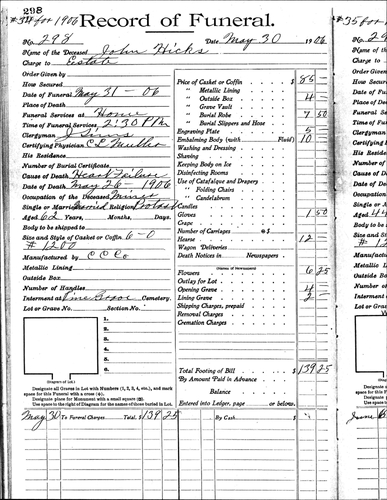 298
#34 for 1906
Record of Funeral.
No. 298 Date May 30 1906
Name of the Deceased John Hicks
Charge to Estate
Order Given by
How Secured
Date of Funeral May 31-06
Place of Death
Funeral Services at Home
Time of Funeral Services 2:30 P.M.
Clergyman J Sims
Certifying Physician
His Residence
Number of Burial Certificate
Cause of Death Heart Failure
Date of Death May 26-1906
Occupation of the Deceased Miner
Single or Married Married Religion
Aged 62 Years, Months, Days.
Body to be shipped to
Size and Style of Casket or Coffin 6-0
#1200
Manufactured by C C Co
Metallic Lining
Outside Box
Number of Handles
Interment at Cemetery.
Lot or Grave No. Section No.
1.
2.
3.
4.
5.
(Diagram of Lot)
Designate all Graves in Lot with Numbers (1, 2, 3, 4, etc.), and mark
space for this Funeral with a cross (+).
Designate place for Monument with a small square (□).
Use space to the right of Diagram for the names of those buried in Lot.
Price of Casket or Coffin $ 85 -
" Metallic Lining
" Outside Box 4 -
" Grave Vault
" Burial Robe 7 50
" Burial Slippers and Hose
Engraving Plate 5
Embalming Body (with Fluid) 10
Washing and Dressing
Shaving
Keeping Body on Ice
Disinfecting Rooms
Use of Catafalque and Drapery
" Folding Chairs
" Candelabrum
Candles
Gloves 1 50
Crape
Number of Carriages @ $
Hearse 12
Wagon Deliveries
Death Notices in Newspapers
(Names of Newspapers)
Flowers 6 25
Outlay for Lot
Opening Grave 4
Lining Grave 2 -
Shipping Charges, prepaid
Removal Charges
Cremation Charges
Total Footing of Bill $ 139 25
By Amount Paid in Advance
Balance
Entered into Ledger, page or below.
May 30 To Funeral Charges Total, $ 139 25 By Cash $
#35 for
No. 29
Name of
Charge to
Order Giv
How Secur
Date of Fu
Place of D
Funeral Se
Time of Fu
Clergyman
Certifying
His Reside
Number of
Cause of D
Date of De
Occupation
Single or M
Aged 44
Body to be
Size and St
Manufactur
Metallic Li
Outside Bo
Number of
Interment
Lot or Grav
Designate
space for this F
Designate
Use space t
June